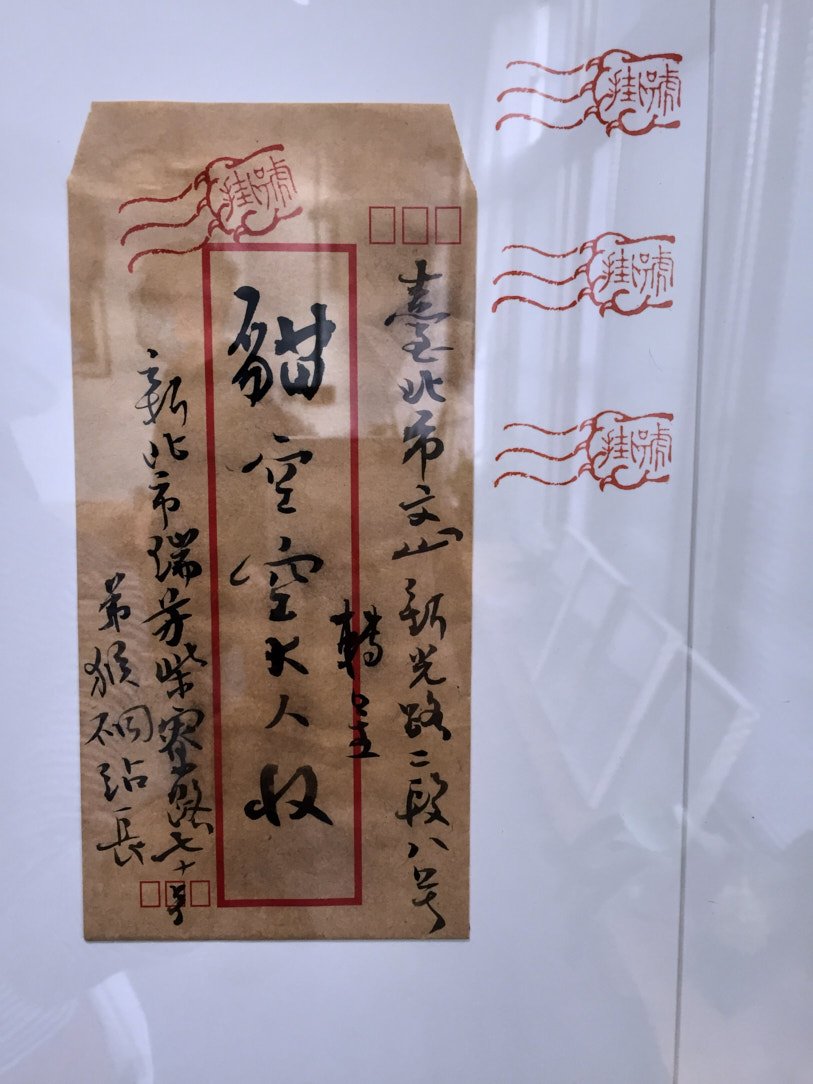 挂號
挂號
挂號
挂號
臺北市文山新光路二段八号
轉呈
貓空空大人收
新北市瑞芳柴寮路七十号
弟猴硐站長